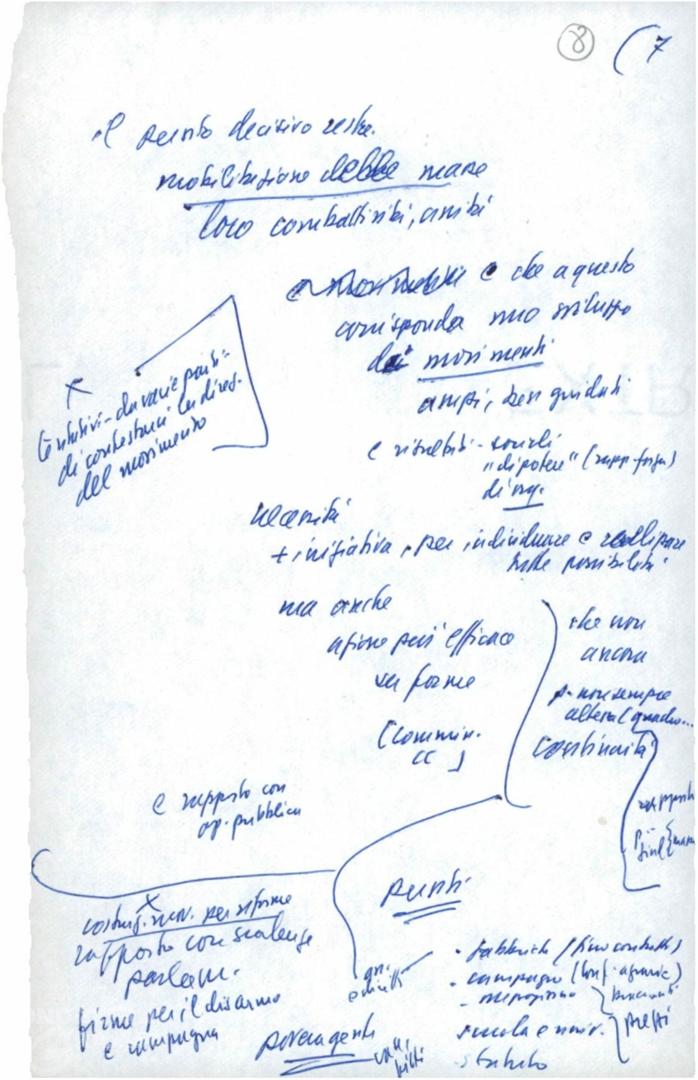 8 (7
il punto decisivo resta
mobilitazione delle masse
loro combattività, unità
e che a questo
corrisponda uno sviluppo
dei movimenti
ampi, ben guidati
e risultati - sociali
"di potere" (rapp. forza)
di org.
X
tentativi - da varie parti -
di contestarci la direz.
del movimento
necessità
+ iniziativa, per individuare e realizzare
tutte possibilità
ma anche
azione più efficace
su forme
(Commiss.
CC)
che non
ancora
p. non sempre
altezza (quadro...
continuità
e rapporto con
op. pubblica
X
costruz. mov. per riforme
rapporto con scadenze
parlam.
firme per il disarmo
e campagna
punti
- fabbriche (fino contratti)
- campagne (conf. agrarie)
- mezzogiorno
prezzi
scuola e univ.
statuto
povera gente